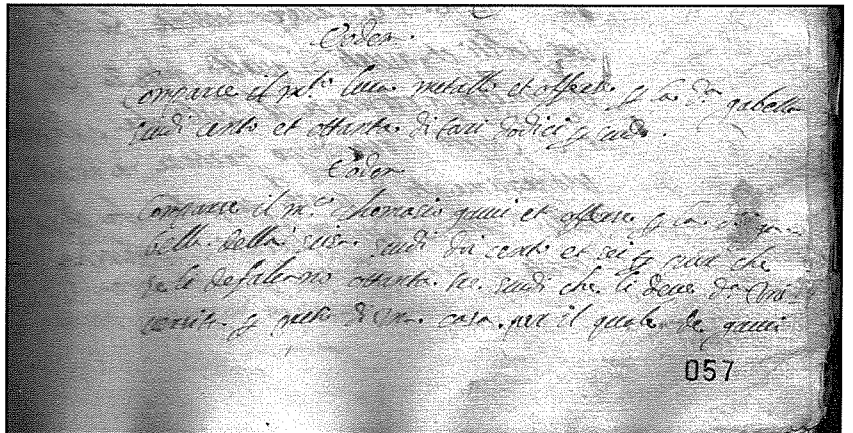 Eodem.
Comparse il m.to Luca metallo et offerse p la d.a gabella
scudi cento et ottanta di tari dodici p scudo.
Eodem
Comparse il m.co thomasio et offerse p la d.a ga
bella della scudi dui cento et sei p che
se le defalcano ottanta tre scudi che li deve d.a Uni
versita p di una casa per il quale de
057